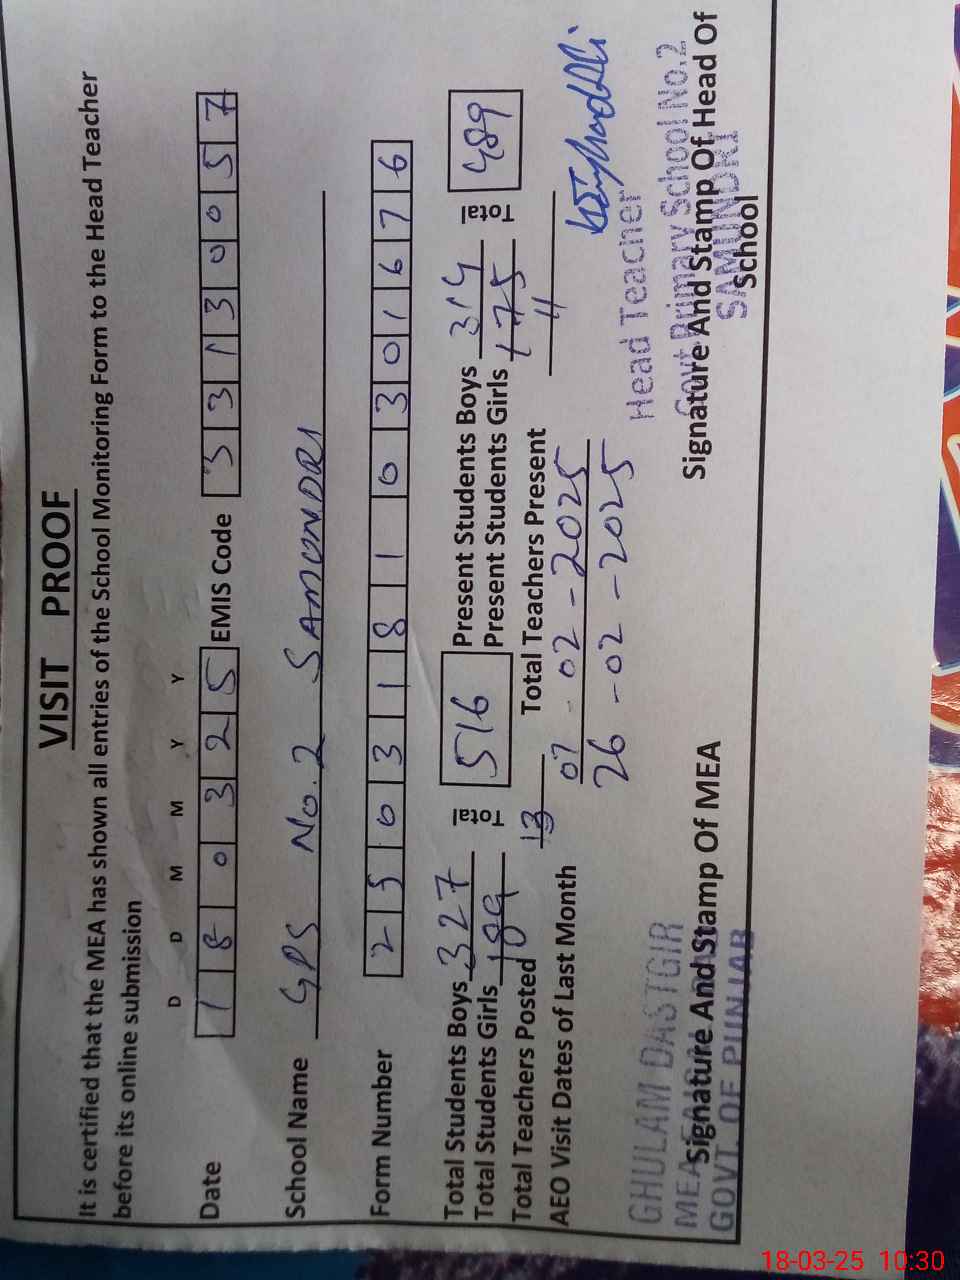 VISIT PROOF
It is certified that the MEA has shown all entries of the School Monitoring Form to the Head Teacher
before its online submission
D D M M Y Y
Date 1 8 0 3 2 5 EMIS Code 3 3 1 3 0 0 5 7
School Name GPS No. 2 SAMUNDRI
Form Number 2 5 0 3 1 8 1 0 3 0 1 6 7 6
Total Students Boys 327 Total 516 Present Students Boys 314 Total 489
Total Students Girls 189 Present Students Girls 175
Total Teachers Posted 13 Total Teachers Present 11
AEO Visit Dates of Last Month 07-02-2025
26-02-2025
GHULAM DASTGIR
MEA
GOVT. OF PUNJAB
Signature And Stamp Of MEA
Head Teacher
Govt. Primary School No.2
SAMUNDRI
Signature And Stamp Of Head Of
School
18-03-25 10:30